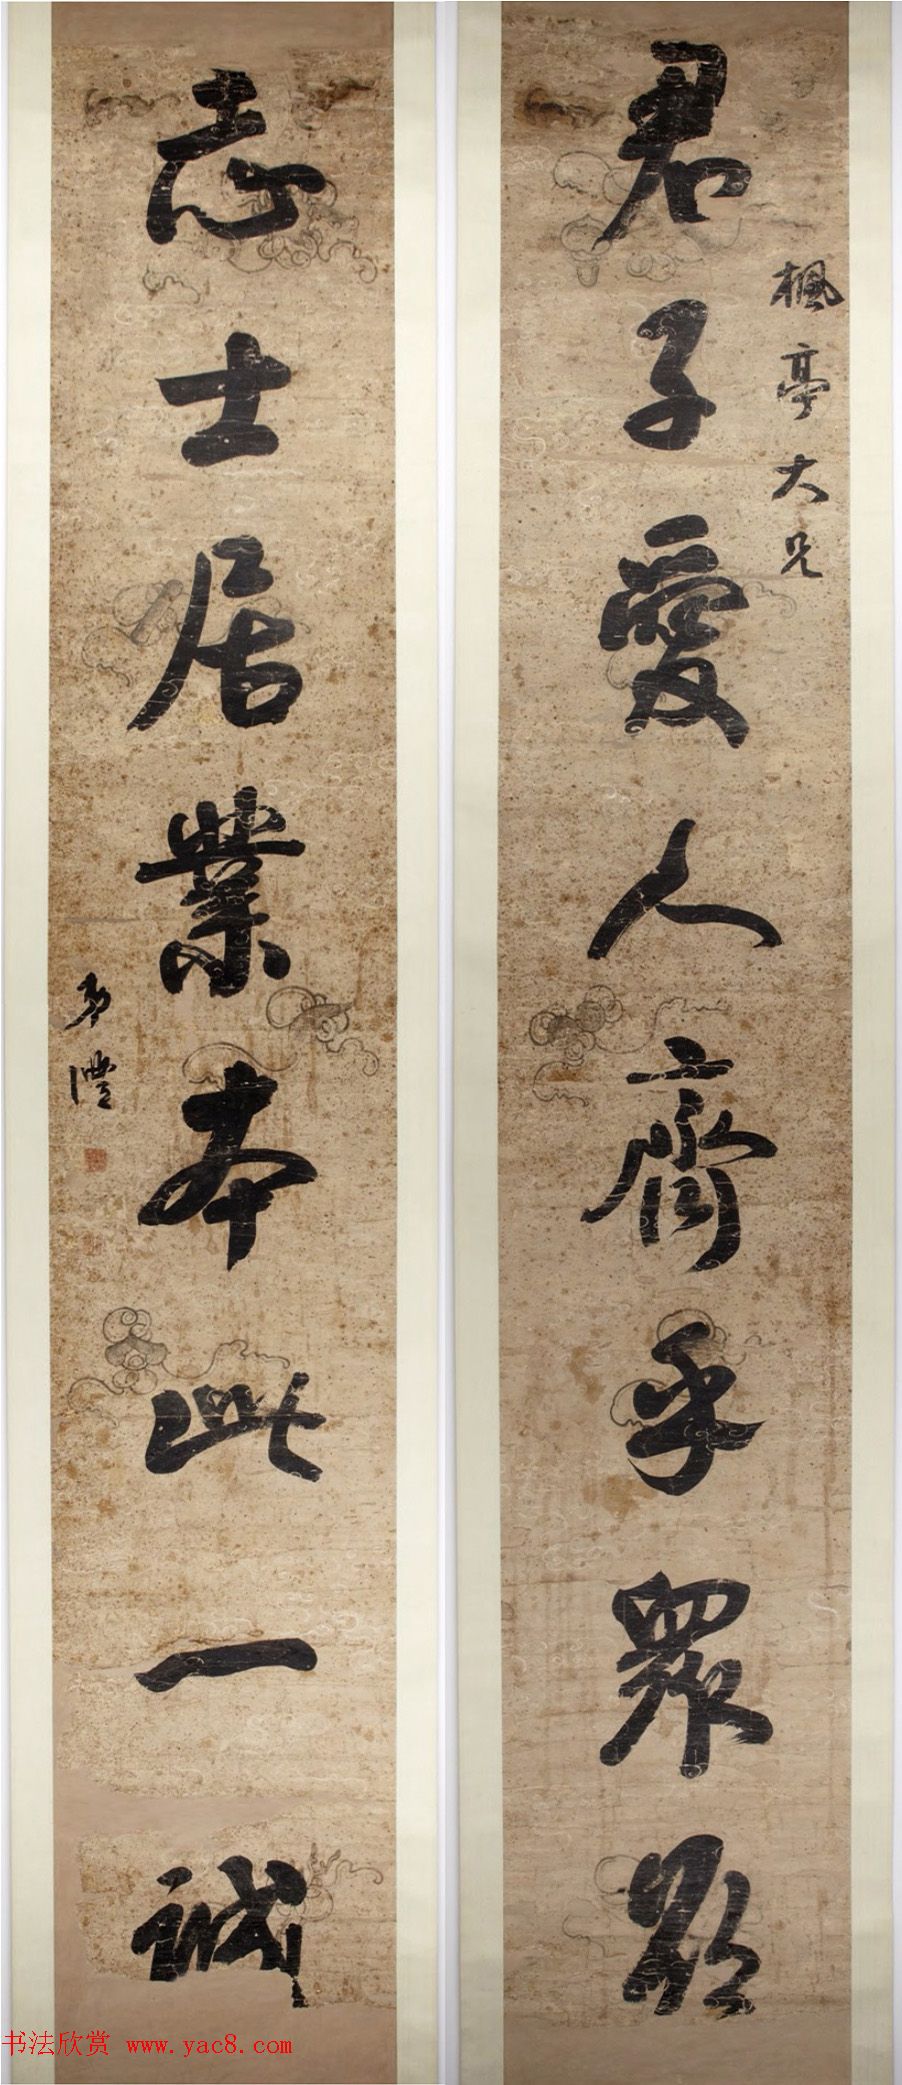 楓亭大兄
君子愛人齊乎眾
志士居業本此一誠
书法欣赏 www.yac8.com